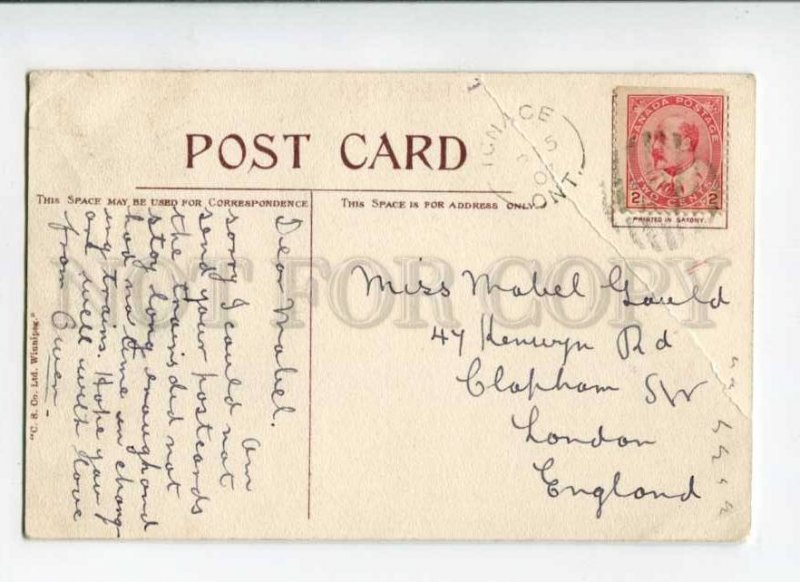 POST CARD
IGNACE
5
ONT.
CANADA POSTAGE
2 TWO CENTS 2
PRINTED IN SAXONY.
THIS SPACE MAY BE USED FOR CORRESPONDENCE
THIS SPACE IS FOR ADDRESS ONLY
Dear Mabel.
Am
sorry I could not
send your postcards
the trains did not
stay long enough and
had no time in chang-
ing trains. Hope you
are well with love
from Owen -
Miss Mabel Gould
47 Kenwyn Rd
Clapham SW
London
England
"C. S. Co. Ltd. Winnipeg."
NOT FOR COPY